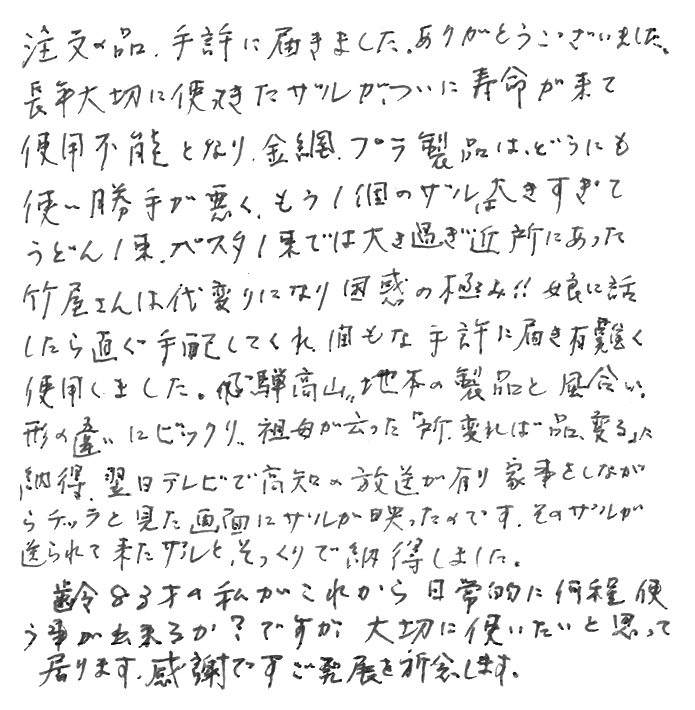 注文の品、手許に届きました。ありがとうございました。
長年大切に使って来たザルが、ついに寿命が来て
使用不能となり、金網、プラ製品は、どうにも
使い勝手が悪く、もう1個のザルは大きすぎて
うどん1束、パスタ1束では大き過ぎ近所にあった
竹屋さんは代変りになり困惑の極み!!娘に話
したら直ぐ手配してくれ、間もな手許に届き有難く
使用しました。飛騨高山"地本の製品と風合い、
形の違いにビックリ、祖母が云った「所変れば品変る」に
納得、翌日テレビで高知の放送が有り家事をしなが
らチラッと見た画面にザルが映ったのです。そのザルが
送られて来たザルと、そっくりで納得しました。
齢令83才の私がこれから日常的に何程使
う事が出来るか?ですが、大切に使いたいと思って
居ります。感謝ですご発展を祈念します。